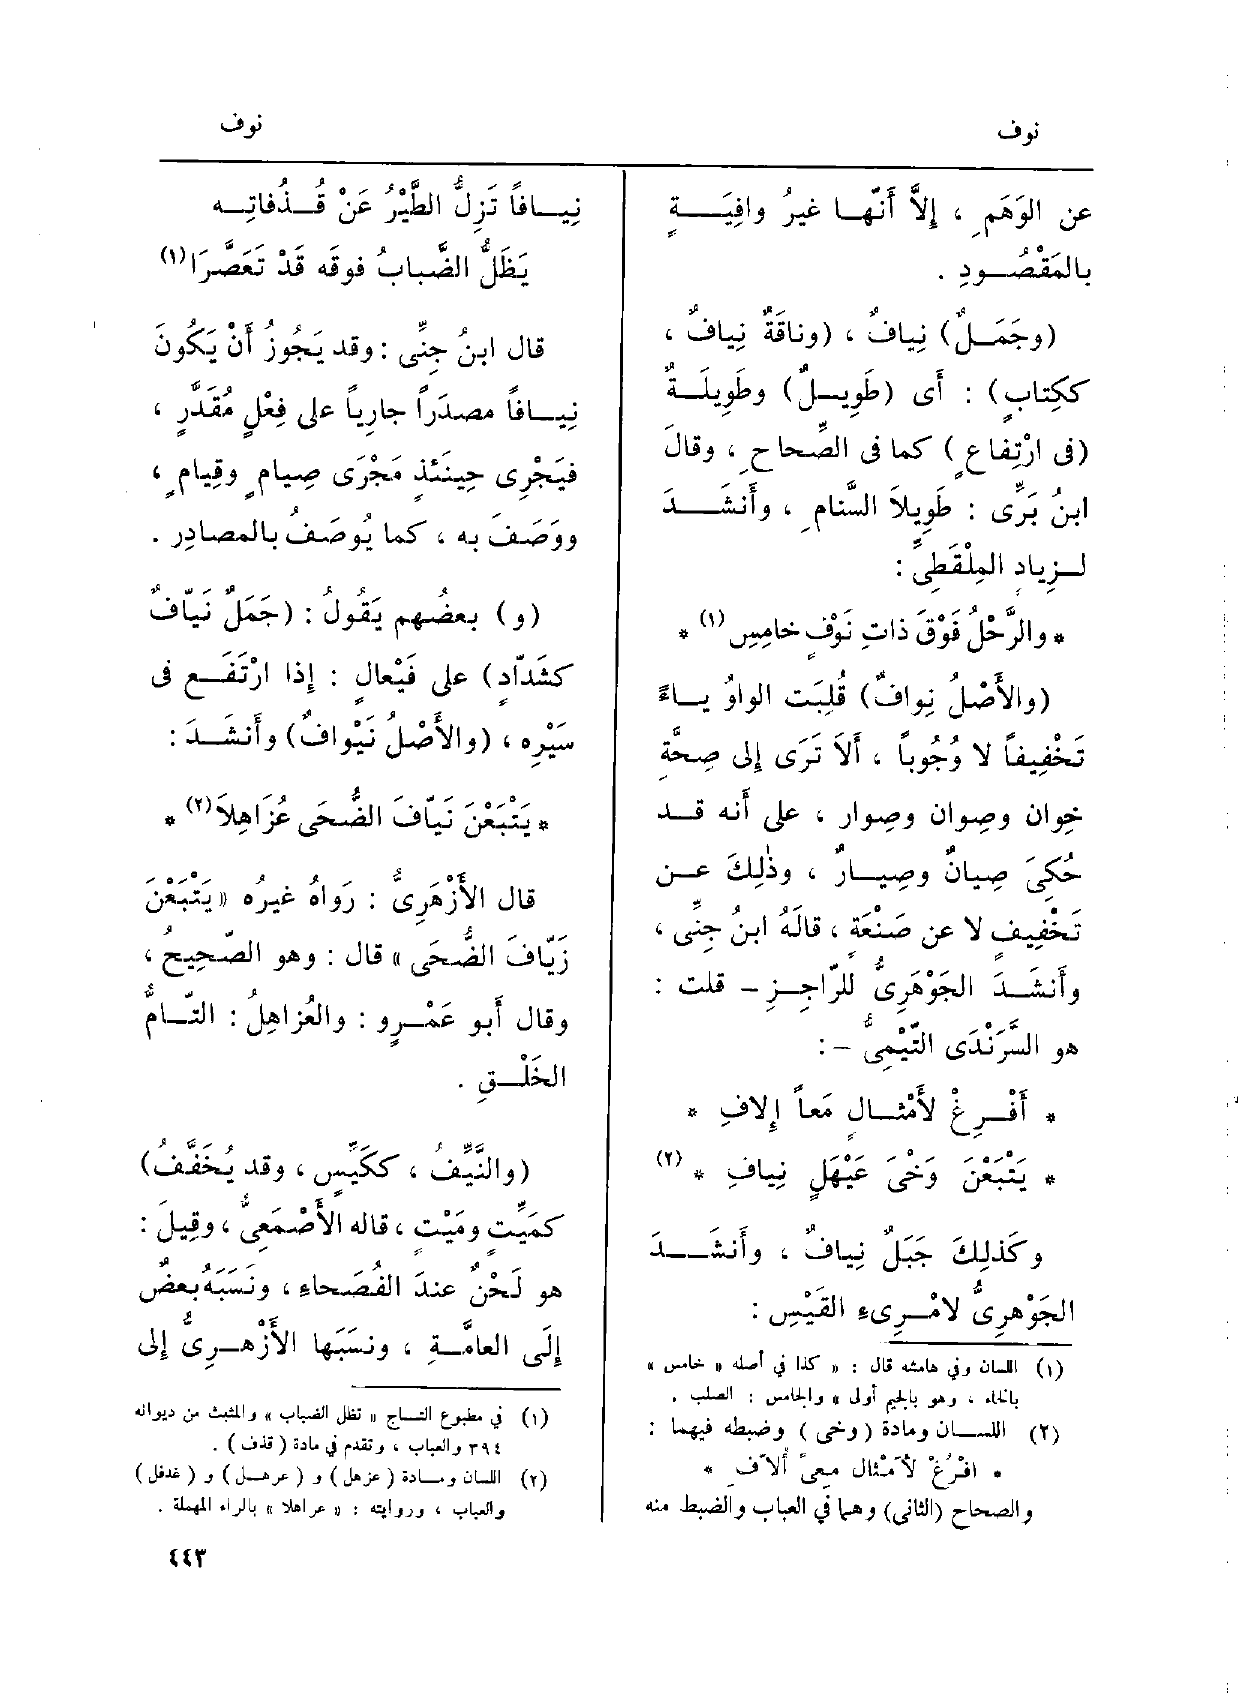 نوف
نوف
عن الوَهَمِ ، إِلاَّ أَنَّهـا غيرُ وافِيَـــةٍ
بالمَقْصُـودِ .
(وجَمَـلٌ) نِيافٌ ، (وناقَةٌ نِيافٌ ،
ككِتابٍ) : أَى (طَوِيـلٌ) وطَوِيلَـةٌ
(فى ارْتِفاعٍ) كما فى الصِّحاحِ ، وقالَ
ابنُ بَرِّى : طَوِيلاَ السَّنامِ ، وأَنشَـــدَ
لـزِياد المِلْقَطِىِّ :
* والرَّحْلُ فَوْقَ ذاتِ نَوْفٍ خامِسِ (١) *
(والأَصْلُ نِوافٌ) قُلِبَت الواوُ يـاءً
تَخْفِيفاً لا وُجُوباً ، أَلاَ تَرَى إِلى صِحَّةِ
خِوان وصِوان وصِوار ، على أَنه قـد
حُكِىَ صِيانٌ وصِيـارٌ ، وذٰلِكَ عـن
تَخْفِيفٍ لا عن صَنْعَةٍ ، قالَهُ ابنُ جِنِّى ،
وأَنشَـدَ الجَوْهَرِىُّ للرّاجِـزِ - قلت :
هو السَّرَنْدَى التَّيْمِىُّ - :
* أَفْـرِغْ لأَمْثـالٍ مَعاً إِلافِ *
* يَتْبَعْنَ وَخْىَ عَيْهَلٍ نِيافِ * (٢)
وكَذلِكَ جَبَلٌ نِيافٌ ، وأَنشَـــدَ
الجَوْهرِىُّ لامْرِىءِ القَيْسِ :
(١) اللسان وفي هامشه قال : « كذا في أصله « خامس »
بالخاء ، وهو بالجيم أول » والجامس : الصلب .
(٢) اللســان ومادة (وخى) وضبطه فيهما :
* افْرُغْ لأَمْثال مِعىً أُلاّفِ *
والصحاح (الثانى) وهما في العباب والضبط منه
نِيـافاً تَزِلُّ الطَّيْرُ عَنْ قُـذُفاتِـه
يَظَلُّ الضَّبابُ فوقَه قَدْ تَعَصَّرَا (١)
قال ابنُ جِنِّى : وقد يَجُوزُ أَنْ يَكُونَ
نِيـافاً مصدَراً جارِياً على فِعْلٍ مُقَدَّرٍ ،
فيَجْرِى حِينَئذٍ مَجْرَى صِيامٍ وقِيامٍ ،
ووَصَفَ به ، كما يُوصَفُ بالمصادِر .
(و) بعضُهم يَقُولُ : (جَمَلٌ نَيّافٌ
كشَدّادٍ) على فَيْعالٍ : إِذا ارْتَفَـع فى
سَيْرِه ، (والأَصْلُ نَيْوافٌ) وأَنشَـدَ :
* يَتْبَعْنَ نَيّافَ الضُّحَى عُزَاهِلاَ (٢) *
قال الأَزْهَرِىُّ : رَواهُ غيرُه « يَتْبَعْنَ
زَيّافَ الضُّحَى » قال : وهو الصّحِيحُ ،
وقال أَبو عَمْـرٍو : والعُزاهِلُ : التّـامُّ
الخَلْـقِ .
(والنَّيِّفُ ، ككَيِّسٍ ، وقد يُخَفَّفُ)
كمَيِّتٍ ومَيْتٍ ، قاله الأَصْمَعِىُّ ، وقِيلَ :
هو لَحْنٌ عندَ الفُصَحاءِ ، ونَسَبَهُ بعضٌ
إِلَى العامَّـةِ ، ونسَبَها الأَزْهـرِىُّ إِلى
(١) في مطبوع التـاج « تظل الضباب » والمثبت من ديوانه
٣٩٤ والعباب ، وتقدم في مادة (قذف) .
(٢) اللسان ومـادة (عزهل) و (عرهـل) و (غدفل)
والعباب ، وروايته : « عراهلا » بالراء المهملة .
٤٤٣